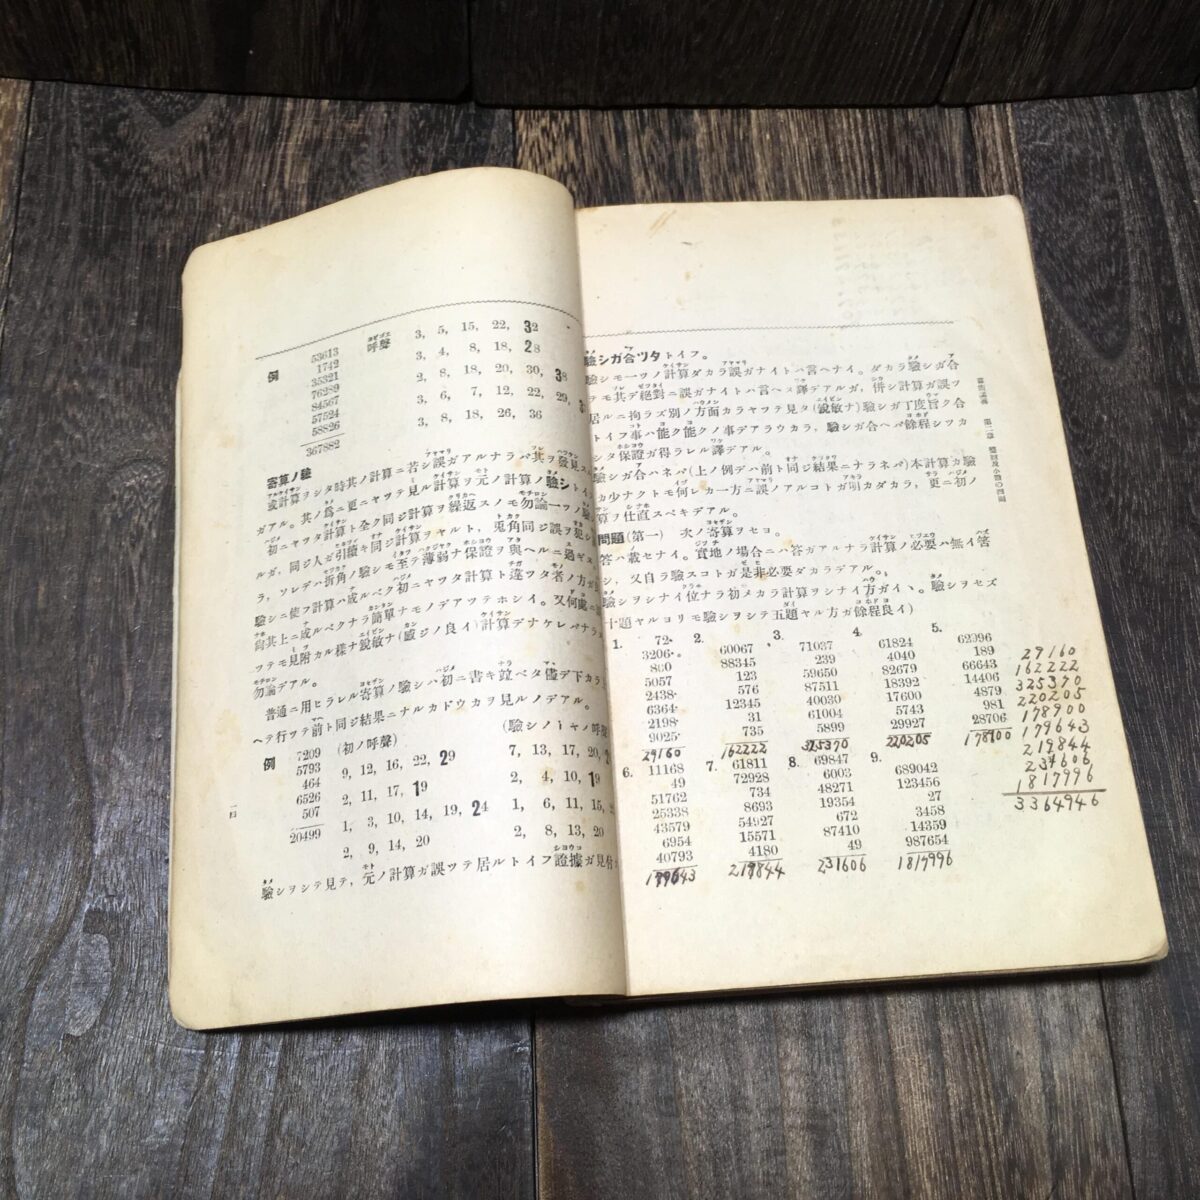 例
53613
1742
35321
76289
84567
57524
58826
367882
呼聲
3, 5, 15, 22, 32
3, 4, 8, 18, 28
2, 8, 18, 20, 30, 38
3, 6, 7, 12, 22, 29,
3, 8, 18, 26, 36
寄算ノ驗
或計算ヲシタ時其ノ計算ニ若シ誤ガアルナラバ其ヲ發見ス
ガアル。其ノ爲ニ更ニヤツテ見ル計算ヲ元ノ計算ノ驗シト
初ニヤツタ計算ト全ク同ジ計算ヲ繰返スノモ勿論一ツノ驗
ルガ, 同ジ人ガ引續キ同ジ計算ヲヤルト, 兎角同ジ誤ヲ犯シ
ラ, ソレデハ折角ノ驗シモ至テ薄弱ナ保證ヲ與ヘルニ過ギズ
驗シニ使フ計算ハ成ルベク初ニヤツタ計算ト違ツタ者ノ方ガ
尙其上ニ成ルベクナラ簡單ナモノデアツテホシイ。又何處ニ
ツテモ見附カル樣ナ鋭敏ナ(感ジノ良イ)計算デナケレバナラ
勿論デアル。
普通ニ用ヒラレル寄算ノ驗シハ初ニ書キ竝ベタ儘デ下カラ
ヘテ行ツテ前ト同ジ結果ニナルカドウカヲ見ルノデアル。
例
7209
5793
464
6526
507
20499
(初ノ呼聲)
9, 12, 16, 22, 29
2, 11, 17, 19
1, 3, 10, 14, 19, 24
2, 9, 14, 20
(驗シノトキノ呼聲)
7, 13, 17, 20,
2, 4, 10, 19
1, 6, 11, 15,
2, 8, 13, 20
驗シヲシテ見テ, 元ノ計算ガ誤ツテ居ルトイフ證據ガ見付
一四
驗シガ合ツタトイフ。
驗シモ一ツノ計算ダカラ誤ガナイトハ言ヘナイ。ダカラ驗シガ合
テモ其デ絶對ニ誤ガナイトハ言ヘヌ譯デアルガ, 併シ計算ガ誤ツ
居ルニ拘ラズ別ノ方面カラヤツテ見タ(鋭敏ナ)驗シガ丁度旨ク合
トイフ事ハ能ク能クノ事デアラウカラ, 驗シガ合ヘバ餘程シツカ
シタ保證ガ得ラレル譯デアル。
驗シガ合ハネバ(上ノ例デハ前ト同ジ結果ニナラネバ)本計算カ驗
カ少ナクトモ何レカ一方ニ誤ノアルコトガ明カダカラ, 更ニ初ノ
算ヲ仕直スベキデアル。
問題(第一) 次ノ寄算ヲセヨ。
答ハ載セナイ。實地ノ場合ニハ答ガアルナラ計算ノ必要ハ無イ筈
シ, 又自ラ驗スコトガ是非必要ダカラデアル。
驗シヲシナイ位ナラ初メカラ計算ヲシナイ方ガイヽ。驗シヲセズ
十題ヤルヨリモ驗シヲシテ五題ヤル方ガ餘程良イ)
1.
72
3206
860
5057
2438
6364
2198
9025
29160
2.
60067
88345
123
576
12345
31
735
162222
3.
71037
239
59650
87511
40030
61004
5899
325370
4.
61824
4040
82679
18392
17600
5743
29927
220205
5.
62996
189
66643
14406
4879
981
28706
178900
6.
11168
49
51762
25338
43579
6954
40793
179643
7.
61811
72928
734
8693
54927
15571
4180
219844
8.
69847
6003
48271
19354
672
87410
49
231606
9.
689042
123456
27
3458
14359
987654
1817996
29160
162222
325370
220205
178900
179643
219844
231606
1817996
3364946